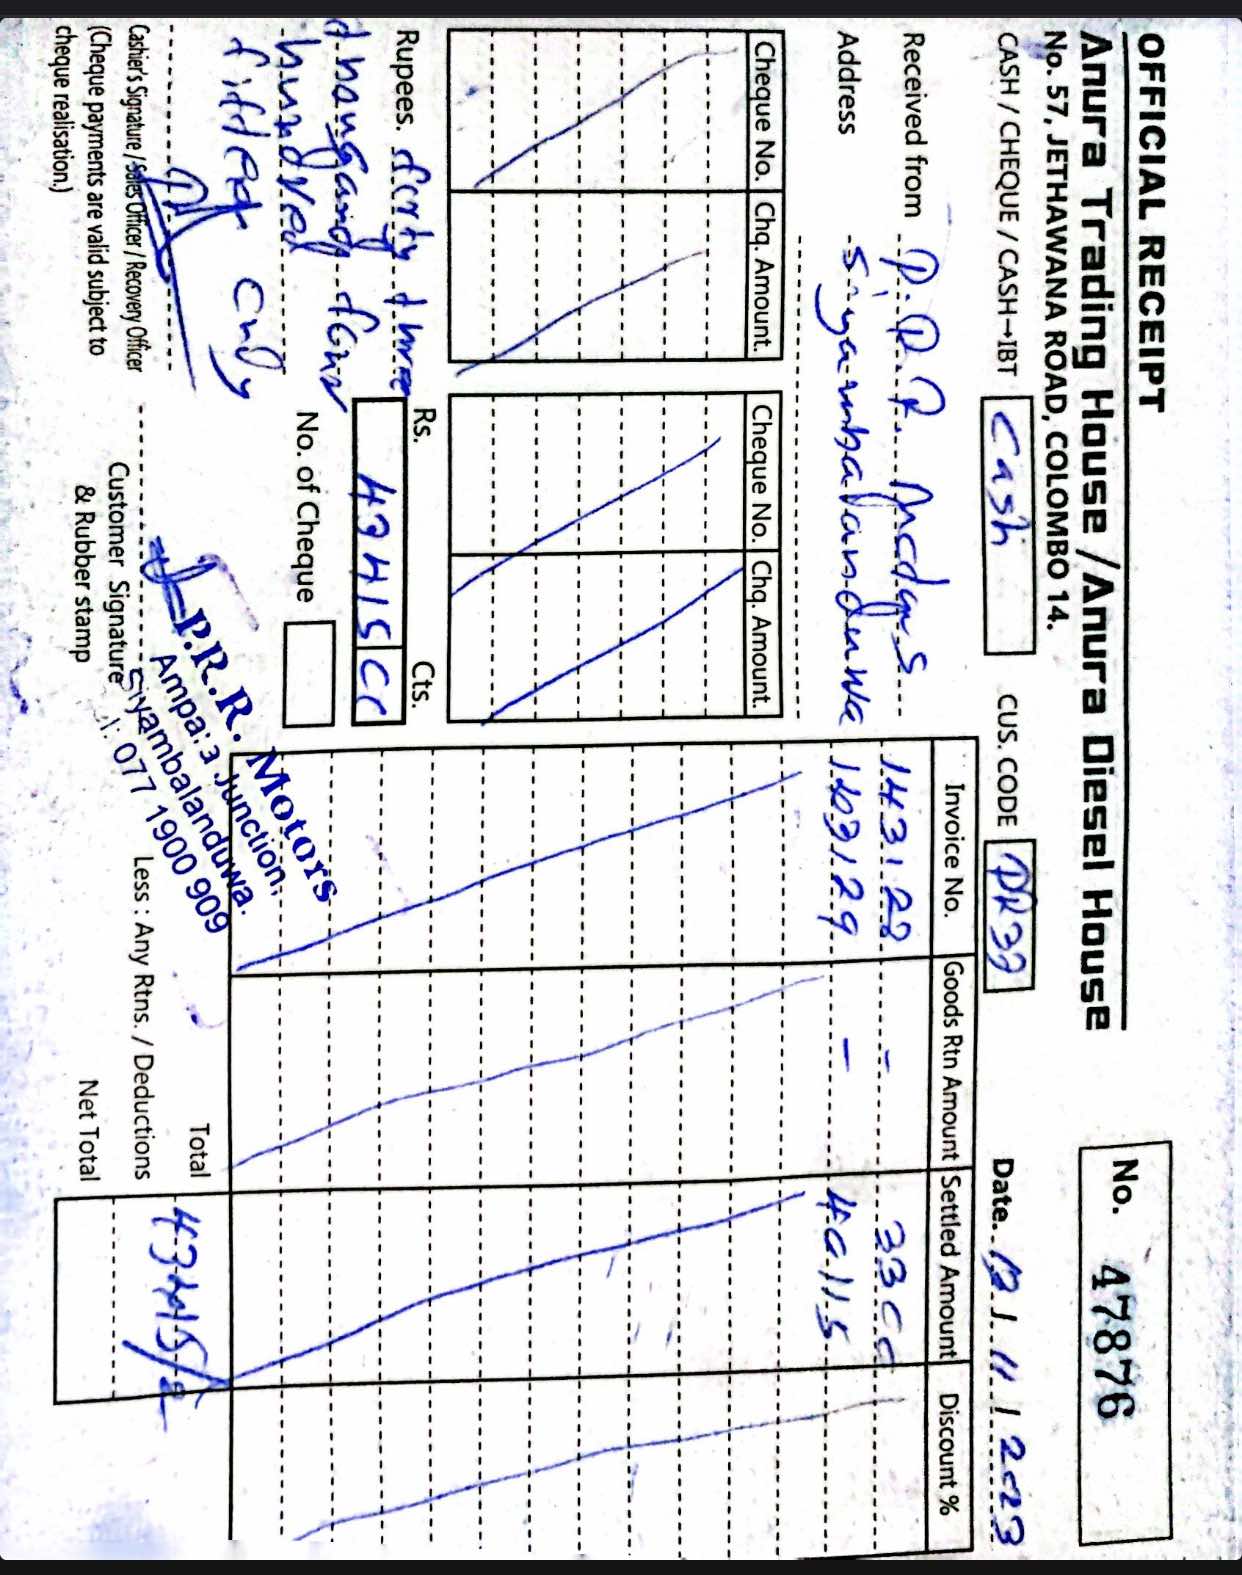 OFFICIAL RECEIPT
Anura Trading House / Anura Diesel House
No. 57, JETHAWANA ROAD, COLOMBO 14.
No. 47876
CASH / CHEQUE / CASH→IBT Cash
CUS. CODE
Date. 11 / 2023
Received from P.R.R. Motors
Address Siyambalanduwa
Cheque No. Chq. Amount. Cheque No. Chq. Amount.
Invoice No. Goods Rtn Amount Settled Amount Discount %
143128 - 3300
143129 - 40115
Rupees. forty three
thousand four
hundred
fifteen only
Rs. Cts.
43415 00
No. of Cheque
Cashier's Signature / Sales Officer / Recovery Officer
(Cheque payments are valid subject to
cheque realisation.)
Customer Signature
& Rubber stamp
P.R.R. Motors
Ampara Junction,
Siyambalanduwa.
077 1900 909
Total 43415/=
Less : Any Rtns. / Deductions
Net Total